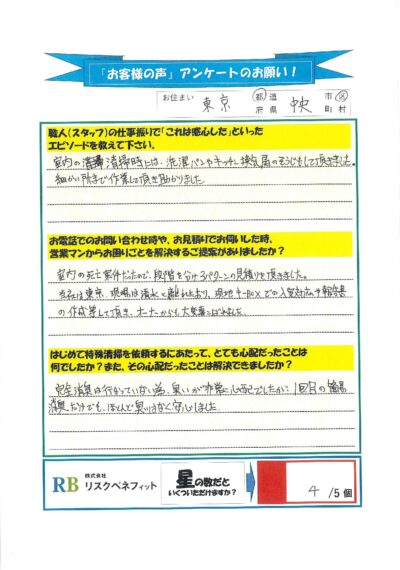 「お客様の声」アンケートのお願い!
お住まい 東京 都道府県 中央 市区町村
職人(スタッフ)の仕事振りで「これは感心した」といった
エピソードを教えて下さい。
室内の清掃時には、洗濯パンやキッチン換気扇のそうじもして頂きました。
細かい所まで作業して頂き助かりました。
お電話でのお問い合わせ時や、お見積りでお伺いした時、
営業マンからお困りごとを解決するご提案がありましたか?
室内の死亡案件だったので、段階を分けるパターンの見積りを頂きました。
当社は東京、現場は清水と離れており、現地キーBOXでの入室対応や報告書
の作成等して頂き、オーナーからも大変喜ばれました。
はじめて特殊清掃を依頼するにあたって、とても心配だったことは
何でしたか?また、その心配だったことは解決できましたか?
完全消臭は行なっていない為、臭いが非常に心配でしたが、1回目の簡易
消臭だけでも、ほとんど臭いはなく安心しました。
RB 株式会社
リスクベネフィット
星の数だと
いくついただけますか?
4 /5個